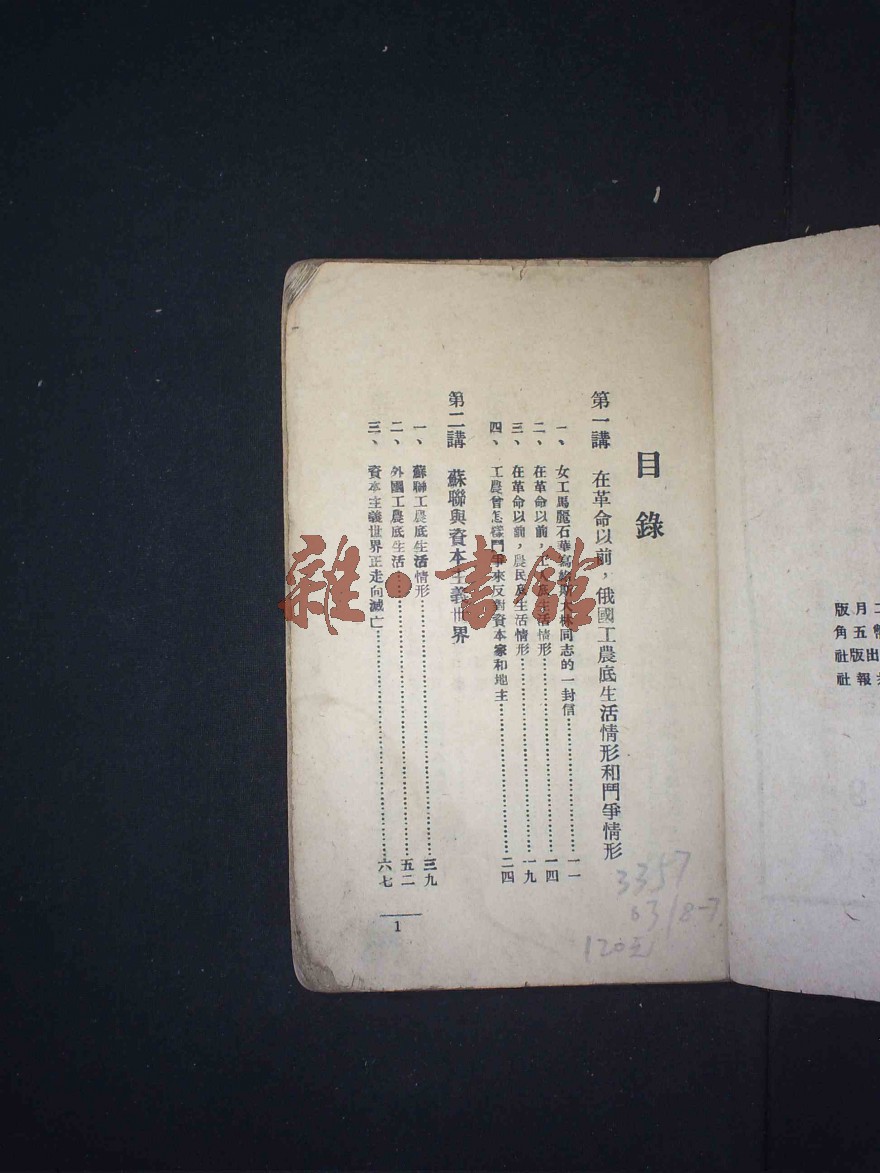 目錄
第一講 在革命以前，俄國工農底生活情形和鬥爭情形
一、女工馬麗石華寫給斯大林同志的一封信…………一一
二、在革命以前，工人底生活情形…………一四
三、在革命以前，農民底生活情形…………一九
四、工農曾怎樣鬥爭來反對資本家和地主…………二四
第二講 蘇聯與資本主義世界
一、蘇聯工農底生活情形…………三九
二、外國工農底生活…………五二
三、資本主義世界正走向滅亡…………六七
1
3357
120元
雜·書館
月版
五角
出版社
報社